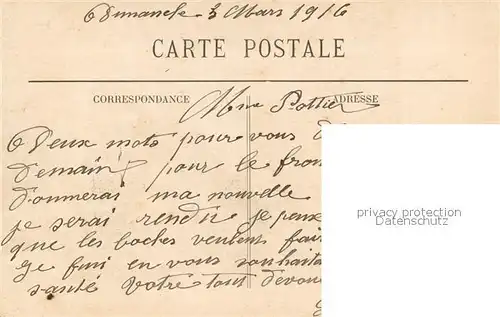 Dimanche 5 Mars 1916
CARTE POSTALE
CORRESPONDANCE
ADRESSE
Mme Pottier
Deux mots pour vous
demain pour le fron
donnerai ma nouvelle
je serai rendu je peux
que les boches veulent fair
Je fini en vous souhaita
santé Votre tout devou
privacy protection
Datenschutz